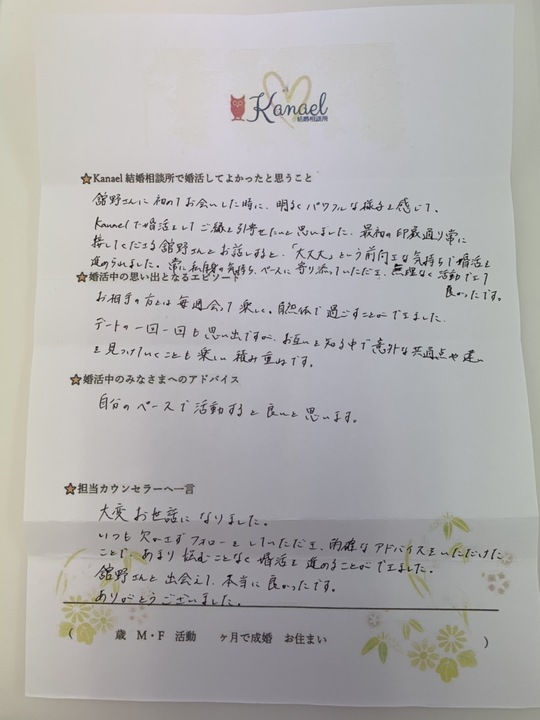 Kanael
結婚相談所
Kanael 結婚相談所で婚活してよかったと思うこと
舘野さんに初めてお会いした時に、明るくパワフルな様子を感じて、
Kanaelで婚活をしてご縁を引き寄せたいと思いました。最初の印象通り常に
接してくださる舘野さんとお話しすると、「大丈夫」という前向きな気持ちで婚活を
進められました。常に私自身の気持ち、ペースに寄り添っていただき、無理なく活動できて
良かったです。
婚活中の思い出となるエピソード
お相手の方とは毎週会って楽しく、自然体で過ごすことができました。
デートの一回一回も思い出ですが、お互いを知る中で意外な共通点や違い
を見つけていくことも楽しい積み重ねです。
婚活中のみなさまへのアドバイス
自分のペースで活動すると良いと思います。
担当カウンセラーへ一言
大変お世話になりました。
いつも欠かさずフォローをしていただき、的確なアドバイスをいただけた
ことで、あまり悩むことなく婚活を進めることができました。
舘野さんと出会えて、本当に良かったです。
ありがとうございました。
( 歳 M・F 活動 ヶ月で成婚 お住まい )